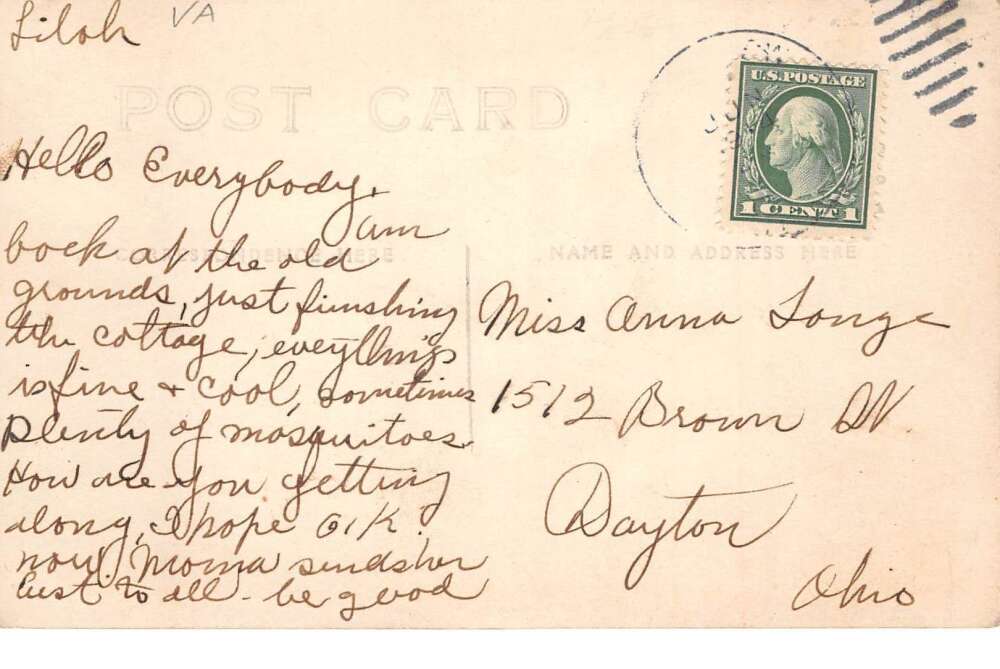 Siloh VA
POST CARD
U.S. POSTAGE
1 CENT 1
Hello Everybody,
am
back at the old
CORRESPONDENCE HERE
NAME AND ADDRESS HERE
grounds, just finushing
the cottage, eveything
is fine + cool, sometimes
plenty of mosquitoes
How are you getting
along, I hope O.K.
now Moma sends her
best to all - be good
Miss Anna Longe
1512 Brown St
Dayton
Ohio